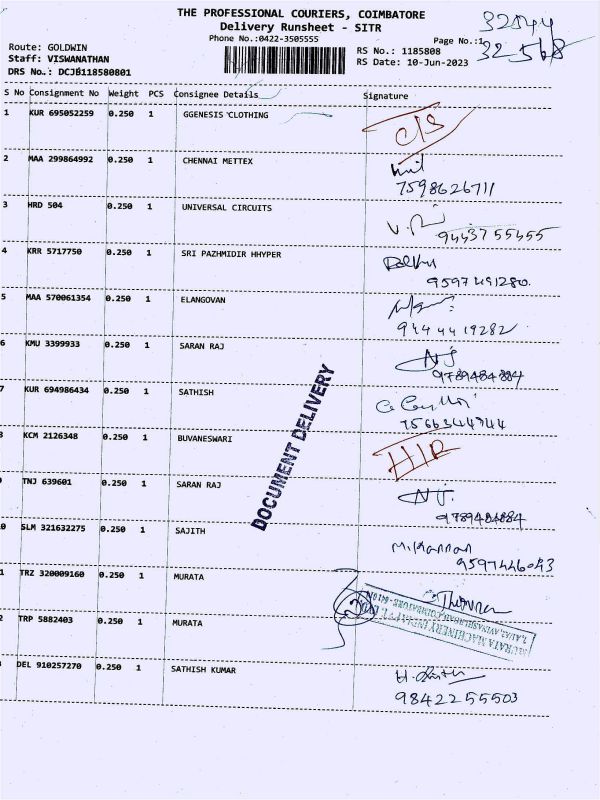 THE PROFESSIONAL COURIERS, COIMBATORE
Delivery Runsheet - SITR
Phone No.:0422-3505555
Page No.:1
32544
32568
Route: GOLDWIN
Staff: VISWANATHAN
DRS No.: DCJB118580801
RS No.: 1185808
RS Date: 10-Jun-2023
S No Consignment No Weight PCS Consignee Details Signature
1 KUR 695052259 0.250 1 GGENESIS CLOTHING
C/S
2 MAA 299864992 0.250 1 CHENNAI METTEX
7598626711
3 HRD 504 0.250 1 UNIVERSAL CIRCUITS
9443755455
4 KRR 5717750 0.250 1 SRI PAZHMIDIR HHYPER
9597491280.
5 MAA 570061354 0.250 1 ELANGOVAN
9444419282
6 KMU 3399933 0.250 1 SARAN RAJ
NJ
9789484884
7 KUR 694986434 0.250 1 SATHISH
7566344944
KCM 2126348 0.250 1 BUVANESWARI
H/R
TNJ 639601 0.250 1 SARAN RAJ
NJ.
9789484884
0 SLM 321632275 0.250 1 SAJITH
M.Kannan
9597446043
1 TRZ 320009160 0.250 1 MURATA
2 TRP 5882403 0.250 1 MURATA
MURATA MACHINERY INDIA PVT. LTD.
DEL 910257270 0.250 1 SATHISH KUMAR
9842255503
DOCUMENT DELIVERY